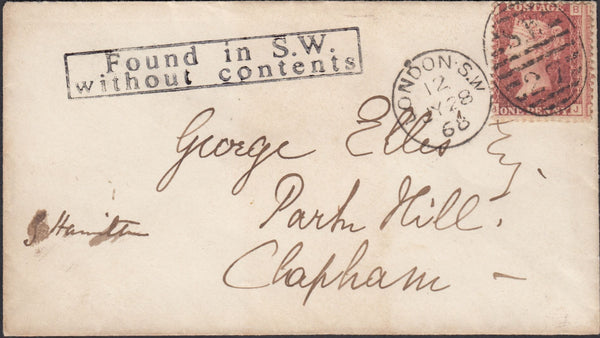 Found in S.W.
without contents
LONDON·S.W
12
JY28
68
POSTAGE
B
ONE PENNY
J
George Ellis Esq.
Park Hill.
Clapham –
G Hamilton